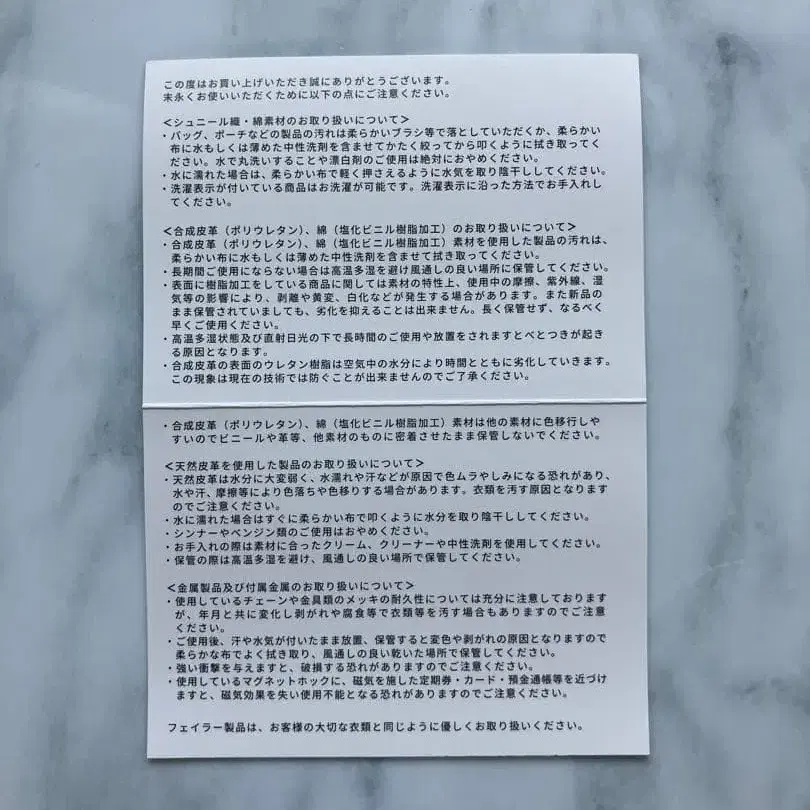 この度はお買い上げいただき誠にありがとうございます。
末永くお使いいただくために以下の点にご注意ください。
＜シュニール織・綿素材のお取り扱いについて＞
・バッグ、ポーチなどの製品の汚れは柔らかいブラシ等で落としていただくか、柔らかい
布に水もしくは薄めた中性洗剤を含ませてかたく絞ってから叩くように拭き取ってく
ださい。水で丸洗いすることや漂白剤のご使用は絶対におやめください。
・水に濡れた場合は、柔らかい布で軽く押さえるように水気を取り陰干ししてください。
・洗濯表示が付いている商品はお洗濯が可能です。洗濯表示に沿った方法でお手入れし
てください。
＜合成皮革（ポリウレタン）、綿（塩化ビニル樹脂加工）のお取り扱いについて＞
・合成皮革（ポリウレタン）、綿（塩化ビニル樹脂加工）素材を使用した製品の汚れは、
柔らかい布に水もしくは薄めた中性洗剤を含ませて拭き取ってください。
・長期間ご使用にならない場合は高温多湿を避け風通しの良い場所に保管してください。
・表面に樹脂加工をしている商品に関しては素材の特性上、使用中の摩擦、紫外線、湿
気等の影響により、剥離や黄変、白化などが発生する場合があります。また新品の
まま保管されていましても、劣化を抑えることは出来ません。長く保管せず、なるべく
早くご使用ください。
・高温多湿状態及び直射日光の下で長時間のご使用や放置をされますとべとつきが起き
る原因となります。
・合成皮革の表面のウレタン樹脂は空気中の水分により時間とともに劣化していきます。
この現象は現在の技術では防ぐことが出来ませんのでご了承ください。
・合成皮革（ポリウレタン）、綿（塩化ビニル樹脂加工）素材は他の素材に色移行しや
すいのでビニールや革等、他素材のものに密着させたまま保管しないでください。
＜天然皮革を使用した製品のお取り扱いについて＞
・天然皮革は水分に大変弱く、水濡れや汗などが原因で色ムラやしみになる恐れがあり、
水や汗、摩擦等により色落ちや色移りする場合があります。衣類を汚す原因となります
のでご注意ください。
・水に濡れた場合はすぐに柔らかい布で叩くように水分を取り陰干ししてください。
・シンナーやベンジン類のご使用はおやめください。
・お手入れの際は素材に合ったクリーム、クリーナーや中性洗剤を使用してください。
・保管の際は高温多湿を避け、風通しの良い場所で保管してください。
＜金属製品及び付属金属のお取り扱いについて＞
・使用しているチェーンや金具類のメッキの耐久性については充分に注意しております
が、年月と共に変化し剥がれや腐食等で衣類等を汚す場合もありますのでご注意
ください。
・ご使用後、汗や水気が付いたまま放置、保管すると変色や剥がれの原因となりますので
柔らかな布でよく拭き取り、風通しの良い乾いた場所で保管してください。
・強い衝撃を与えますと、破損する恐れがありますのでご注意ください。
・使用しているマグネットホックに、磁気を施した定期券・カード・預金通帳等を近づけ
ますと、磁気効果を失い使用不能となる恐れがありますのでご注意ください。
フェイラー製品は、お客様の大切な衣類と同じように優しくお取り扱いください。